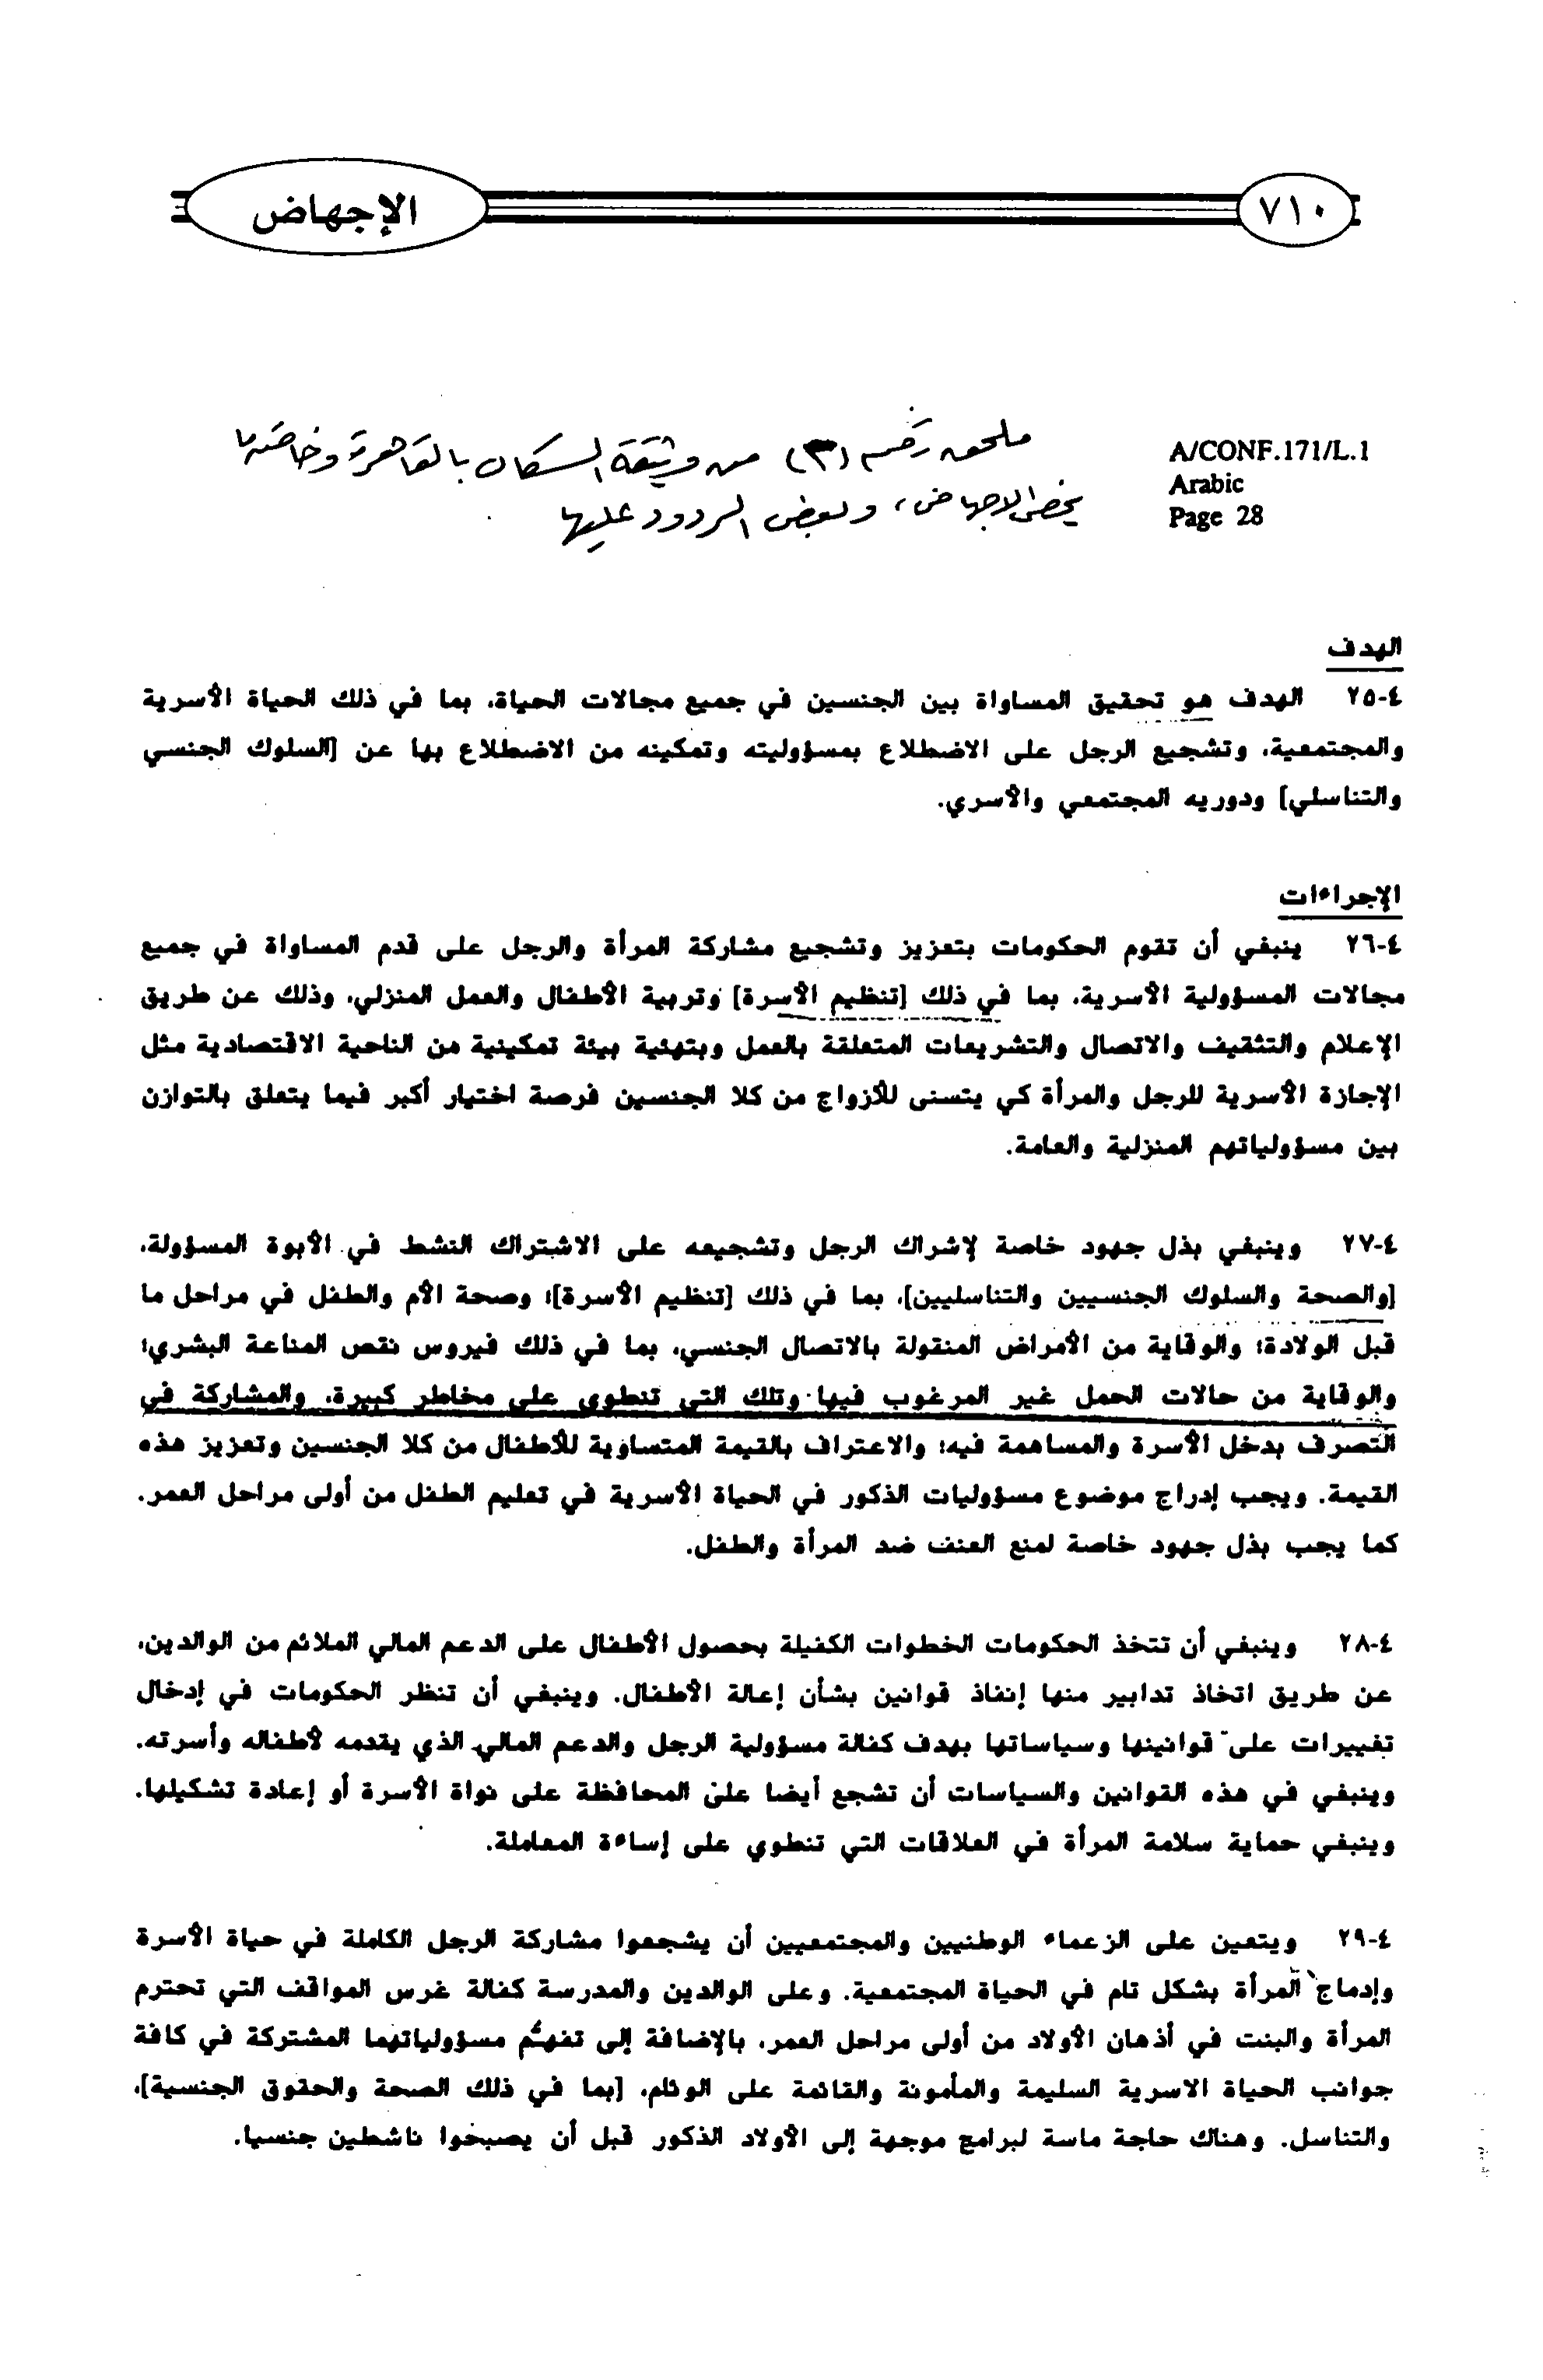 ٧١٠
الإجهاض
ملحق رقم (٣) من وثيقة السكان بالقاهرة وخاصة ما
يخص الاجهاض، وبعض الردود عليها
A/CONF.171/L.1
Arabic
Page 28
الهدف
٤-٢٥ الهدف هو تحقيق المساواة بين الجنسين في جميع مجالات الحياة، بما في ذلك الحياة الأسرية
والمجتمعية، وتشجيع الرجل على الاضطلاع بمسؤوليته وتمكينه من الاضطلاع بها عن [السلوك الجنسي
والتناسلي] ودوريه المجتمعي والأسري.
الإجراءات
٤-٢٦ ينبغي أن تقوم الحكومات بتعزيز وتشجيع مشاركة المرأة والرجل على قدم المساواة في جميع
مجالات المسؤولية الأسرية، بما في ذلك [تنظيم الأسرة] وتربية الأطفال والعمل المنزلي، وذلك عن طريق
الإعلام والتثقيف والاتصال والتشريعات المتعلقة بالعمل وبتهيئة بيئة تمكينية من الناحية الاقتصادية مثل
الإجازة الأسرية للرجل والمرأة كي يتسنى للأزواج من كلا الجنسين فرصة اختيار أكبر فيما يتعلق بالتوازن
بين مسؤولياتهم المنزلية والعامة.
٤-٢٧ وينبغي بذل جهود خاصة لإشراك الرجل وتشجيعه على الاشتراك النشط في الأبوة المسؤولة،
[والصحة والسلوك الجنسيين والتناسليين]، بما في ذلك [تنظيم الأسرة]؛ وصحة الأم والطفل في مراحل ما
قبل الولادة؛ والوقاية من الأمراض المنقولة بالاتصال الجنسي، بما في ذلك فيروس نقص المناعة البشري؛
والوقاية من حالات الحمل غير المرغوب فيها وتلك التي تنطوي على مخاطر كبيرة، والمشاركة في
التصرف بدخل الأسرة والمساهمة فيه؛ والاعتراف بالقيمة المتساوية للأطفال من كلا الجنسين وتعزيز هذه
القيمة. ويجب إدراج موضوع مسؤوليات الذكور في الحياة الأسرية في تعليم الطفل من أولى مراحل العمر.
كما يجب بذل جهود خاصة لمنع العنف ضد المرأة والطفل.
٤-٢٨ وينبغي أن تتخذ الحكومات الخطوات الكفيلة بحصول الأطفال على الدعم المالي الملائم من الوالدين،
عن طريق اتخاذ تدابير منها إنفاذ قوانين بشأن إعالة الأطفال. وينبغي أن تنظر الحكومات في إدخال
تغييرات على قوانينها وسياساتها بهدف كفالة مسؤولية الرجل والدعم المالي الذي يقدمه لأطفاله وأسرته.
وينبغي في هذه القوانين والسياسات أن تشجع أيضا على المحافظة على نواة الأسرة أو إعادة تشكيلها.
وينبغي حماية سلامة المرأة في العلاقات التي تنطوي على إساءة المعاملة.
٤-٢٩ ويتعين على الزعماء الوطنيين والمجتمعيين أن يشجعوا مشاركة الرجل الكاملة في حياة الأسرة
وإدماج المرأة بشكل تام في الحياة المجتمعية. وعلى الوالدين والمدرسة كفالة غرس المواقف التي تحترم
المرأة والبنت في أذهان الأولاد من أولى مراحل العمر، بالإضافة إلى تفهُّم مسؤولياتهما المشتركة في كافة
جوانب الحياة الاسرية السليمة والمأمونة والقائمة على الوئام، [بما في ذلك الصحة والحقوق الجنسية]،
والتناسل. وهناك حاجة ماسة لبرامج موجهة إلى الأولاد الذكور قبل أن يصبحوا ناشطين جنسيا.